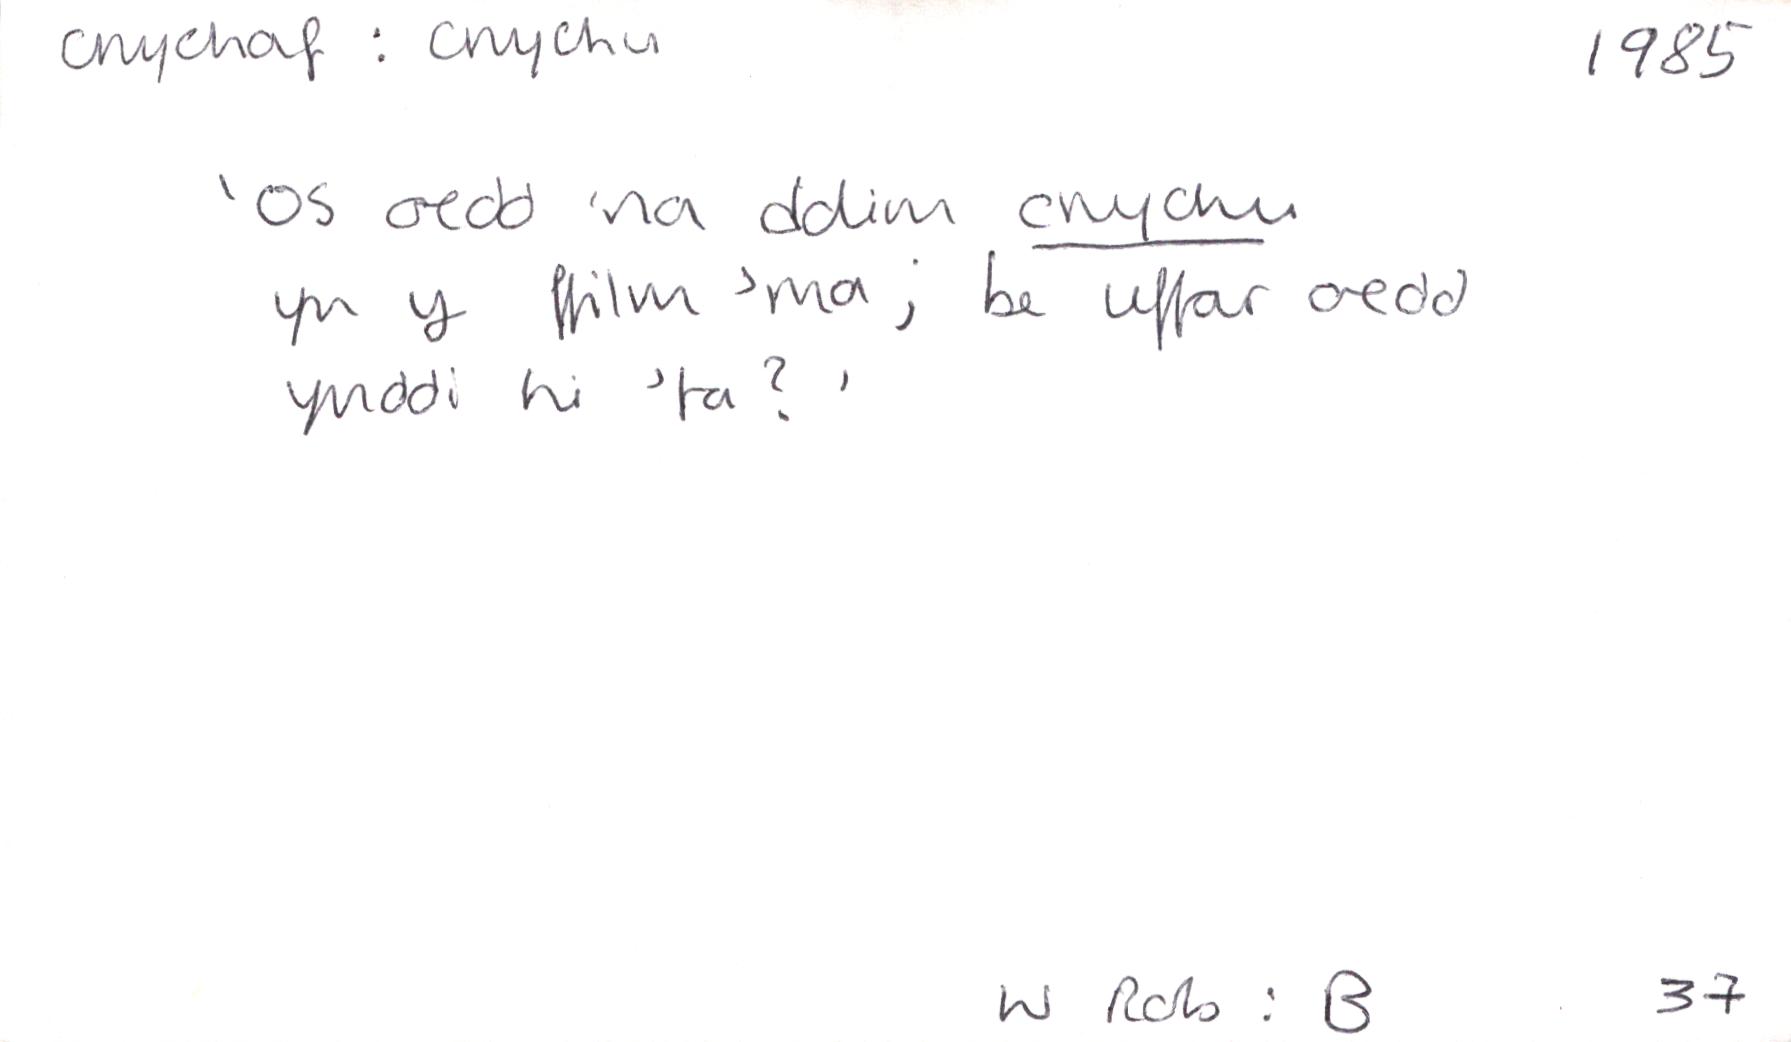 cnychaf : cnychu 1985
'Os oedd 'na ddim cnychu
yn y ffilm 'ma; be uffar oedd
ynddi hi 'ta?'
W Robs : B 37